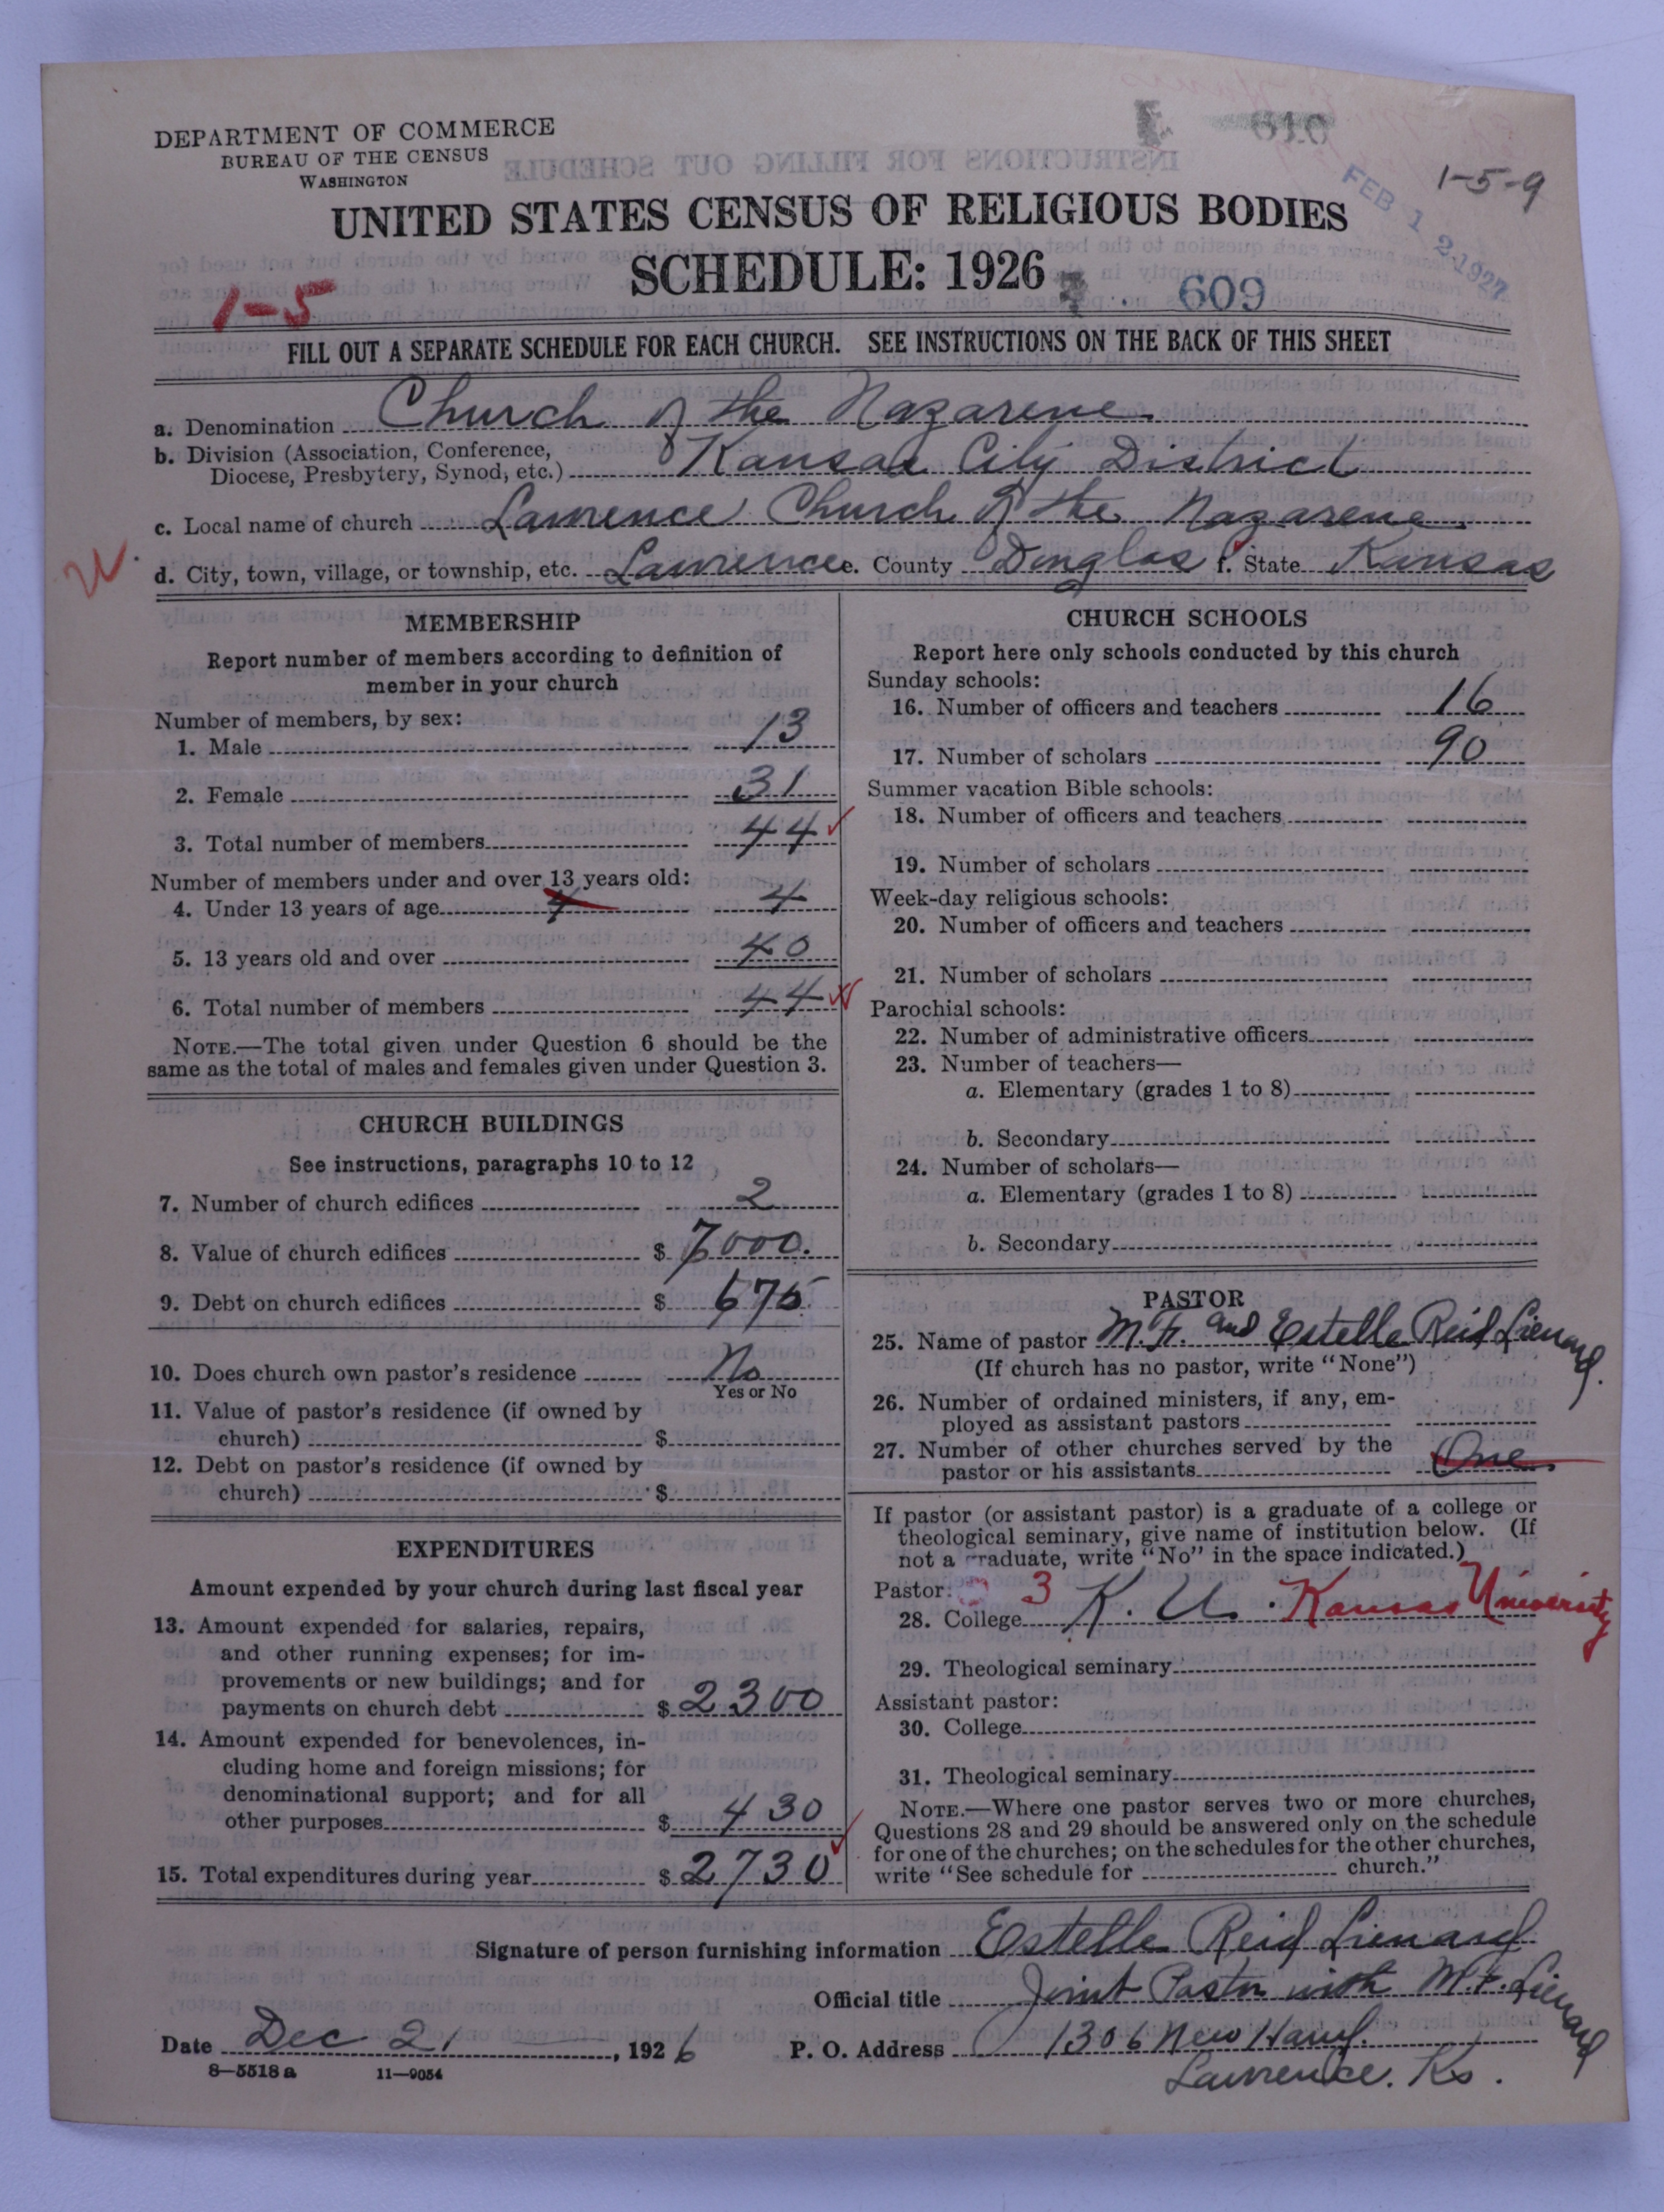 DEPARTMENT OF COMMERCE
BUREAU OF THE CENSUS
WASHINGTON
610
FEB 12 1927
1-5-9
UNITED STATES CENSUS OF RELIGIOUS BODIES
SCHEDULE: 1926
609
1-5
FILL OUT A SEPARATE SCHEDULE FOR EACH CHURCH. SEE INSTRUCTIONS ON THE BACK OF THIS SHEET
a. Denomination Church of the Nazarene.
b. Division (Association, Conference,
Diocese, Presbytery, Synod, etc.) Kansas City District
c. Local name of church Lawrence Church of the Nazarene.
d. City, town, village, or township, etc. Lawrence e. County Douglas f. State Kansas
MEMBERSHIP
Report number of members according to definition of
member in your church
Number of members, by sex:
1. Male 13
2. Female 31
3. Total number of members 44
Number of members under and over 13 years old:
4. Under 13 years of age 4 4
5. 13 years old and over 40
6. Total number of members 44
NOTE.—The total given under Question 6 should be the
same as the total of males and females given under Question 3.
CHURCH BUILDINGS
See instructions, paragraphs 10 to 12
7. Number of church edifices 2
8. Value of church edifices $ 7000.
9. Debt on church edifices $ 675
10. Does church own pastor's residence No
Yes or No
11. Value of pastor's residence (if owned by
church) $
12. Debt on pastor's residence (if owned by
church) $
EXPENDITURES
Amount expended by your church during last fiscal year
13. Amount expended for salaries, repairs,
and other running expenses; for im-
provements or new buildings; and for
payments on church debt $ 2300
14. Amount expended for benevolences, in-
cluding home and foreign missions; for
denominational support; and for all
other purposes $ 430
15. Total expenditures during year $ 2730
CHURCH SCHOOLS
Report here only schools conducted by this church
Sunday schools:
16. Number of officers and teachers 16
17. Number of scholars 90
Summer vacation Bible schools:
18. Number of officers and teachers
19. Number of scholars
Week-day religious schools:
20. Number of officers and teachers
21. Number of scholars
Parochial schools:
22. Number of administrative officers
23. Number of teachers—
a. Elementary (grades 1 to 8)
b. Secondary
24. Number of scholars—
a. Elementary (grades 1 to 8)
b. Secondary
PASTOR
25. Name of pastor M.F. and Estelle Reid Lienard.
(If church has no pastor, write "None")
26. Number of ordained ministers, if any, em-
ployed as assistant pastors
27. Number of other churches served by the
pastor or his assistants One.
If pastor (or assistant pastor) is a graduate of a college or
theological seminary, give name of institution below. (If
not a graduate, write "No" in the space indicated.)
Pastor: 3
28. College K. U. Kansas University
29. Theological seminary
Assistant pastor:
30. College
31. Theological seminary
NOTE.—Where one pastor serves two or more churches,
Questions 28 and 29 should be answered only on the schedule
for one of the churches; on the schedules for the other churches,
write "See schedule for church."
Signature of person furnishing information Estelle Reid Lienard
Official title Joint Pastor with M.F. Lienard
Date Dec 21, 1926 P. O. Address 1306 New Hamp.
Lawrence. Ks.
8—5518 a 11—9054